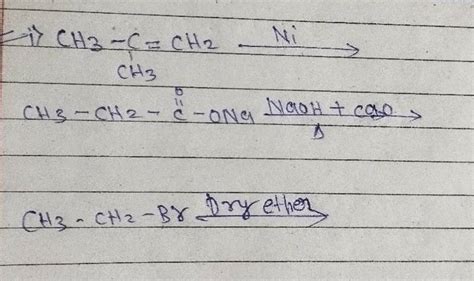 i) CH3 - C = CH2 Ni →
CH3
O
CH3 - CH2 - C - ONa NaOH + CaO →
Δ
CH3 - CH2 - Br Dry ether →